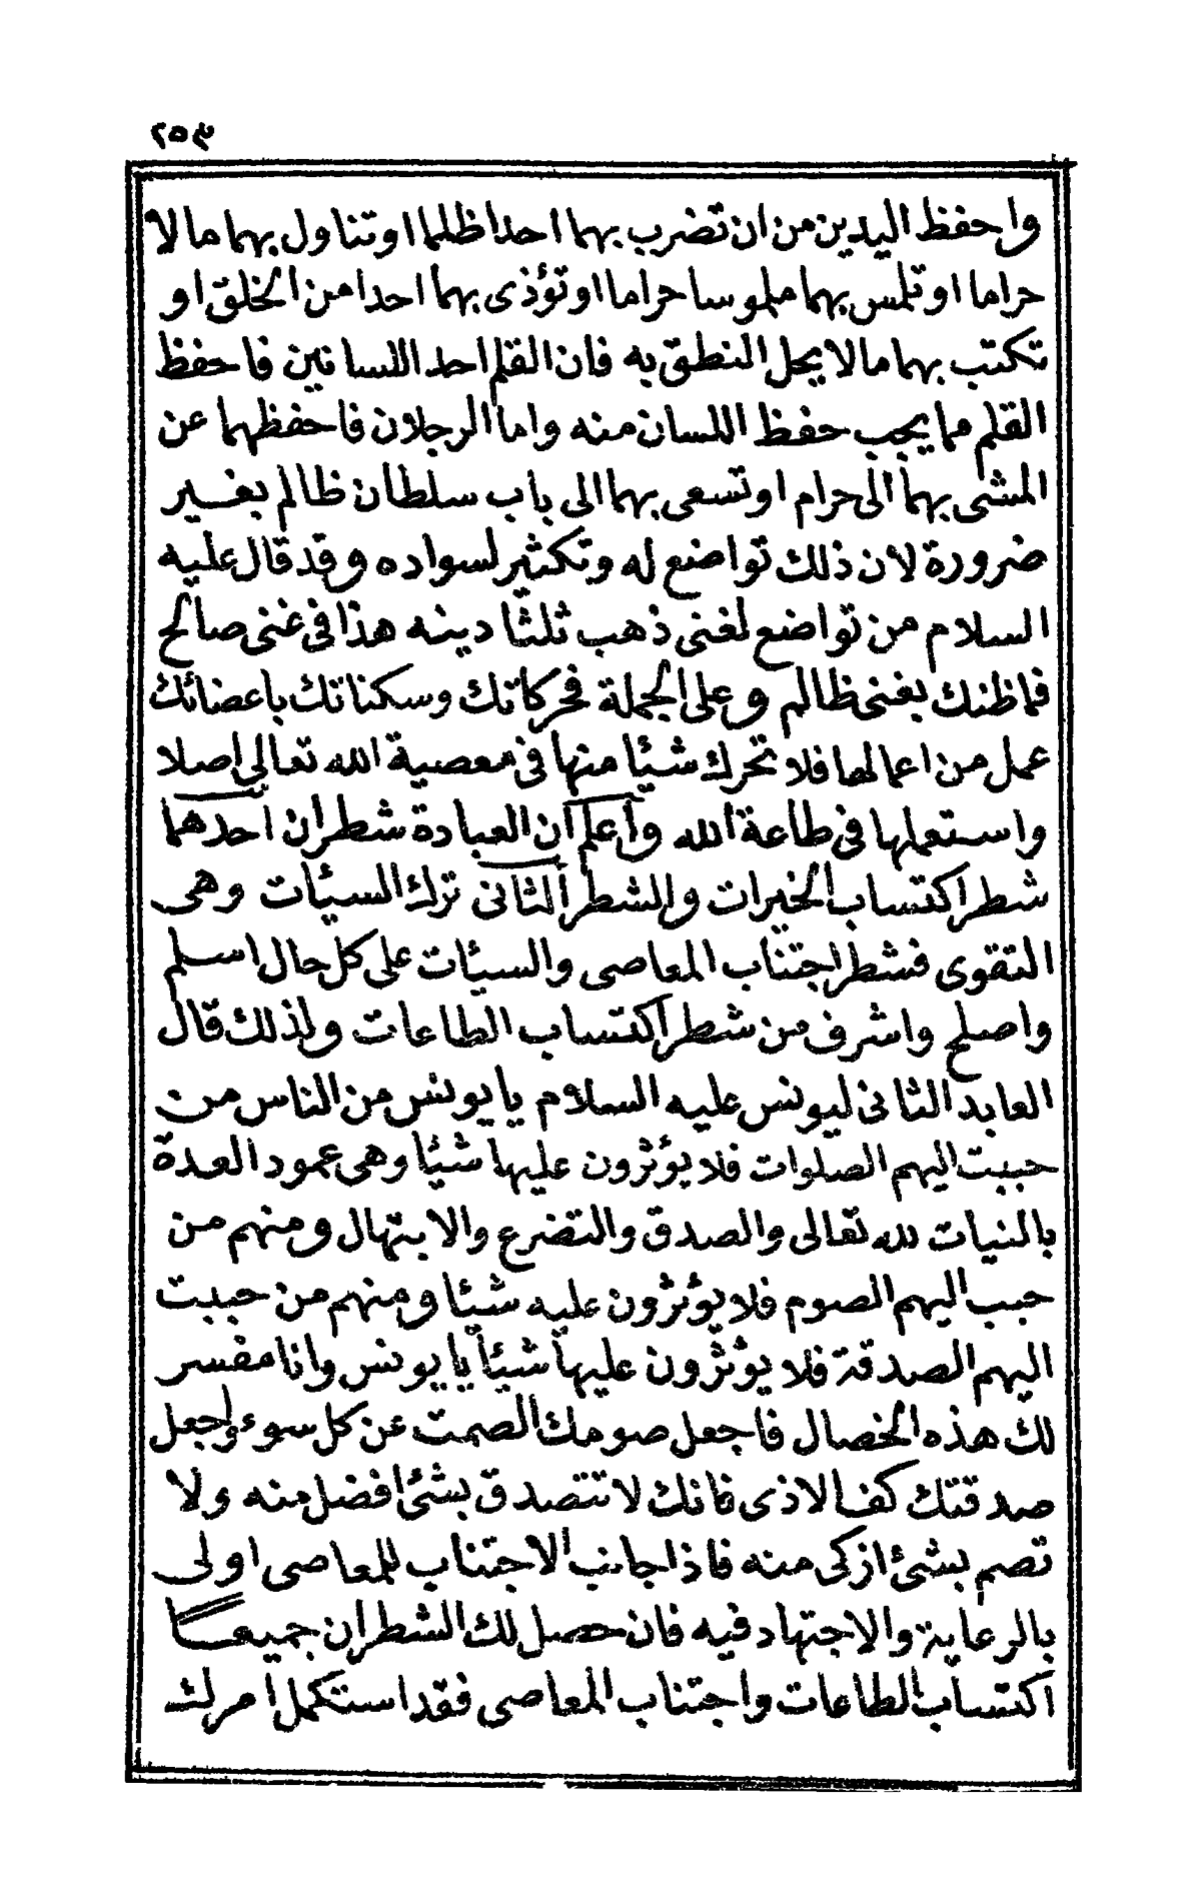 ٢٥٣
واحفظ اليدين من ان تضرب بهما احدا ظلما او تناول بهما مالا
حراما او تلمس بهما ملموسا حراما او تؤذى بهما احدا من الخلق او
تكتب بهما مالا يحل النطق به فان القلم احد اللسانين فاحفظ
القلم مما يجب حفظ اللسان منه واما الرجلان فاحفظهما عن
المشى بهما الى حرام او تسعى بهما الى باب سلطان ظالم بغير
ضرورة لان ذلك تواضع له وتكثير لسواده وقد قال عليه
السلام من تواضع لغنى ذهب ثلثا دينه هذا فى غنى صالح
فما ظنك بغنى ظالم وعلى الجملة فحركاتك وسكناتك باعضائك
عمل من اعمالها فلا تحرك شيئا منها فى معصية الله تعالى اصلا
واستعملها فى طاعة الله وأعلم أن العبادة شطران احدهما
شطر اكتساب الخيرات والشطر الثانى ترك السيئات وهى
التقوى فشطر اجتناب المعاصى والسيئات على كل حال اسلم
واصلح واشرف من شطر اكتساب الطاعات ولذلك قال
العابد الثانى ليونس عليه السلام يا يونس من الناس من
حببت اليهم الصلوات فلا يؤثرون عليها شيئا وهى عمود العدة
بالنيات لله تعالى والصدق والتضرع والابتهال ومنهم من
حبب اليهم الصوم فلا يؤثرون عليه شيئا ومنهم من حببت
اليهم الصدقة فلا يؤثرون عليها شيئا يا يونس وانا مفسر
لك هذه الخصال فاجعل صومك الصمت عن كل سوء واجعل
صدقتك كف الاذى فانك لا تتصدق بشئ افضل منه ولا
تصم بشئ ازكى منه فاذا جانب الاجتناب للمعاصى اولى
بالرعاية والاجتهاد فيه فان حصل لك الشطران جميعا
اكتساب الطاعات واجتناب المعاصى فقد استكمل امرك